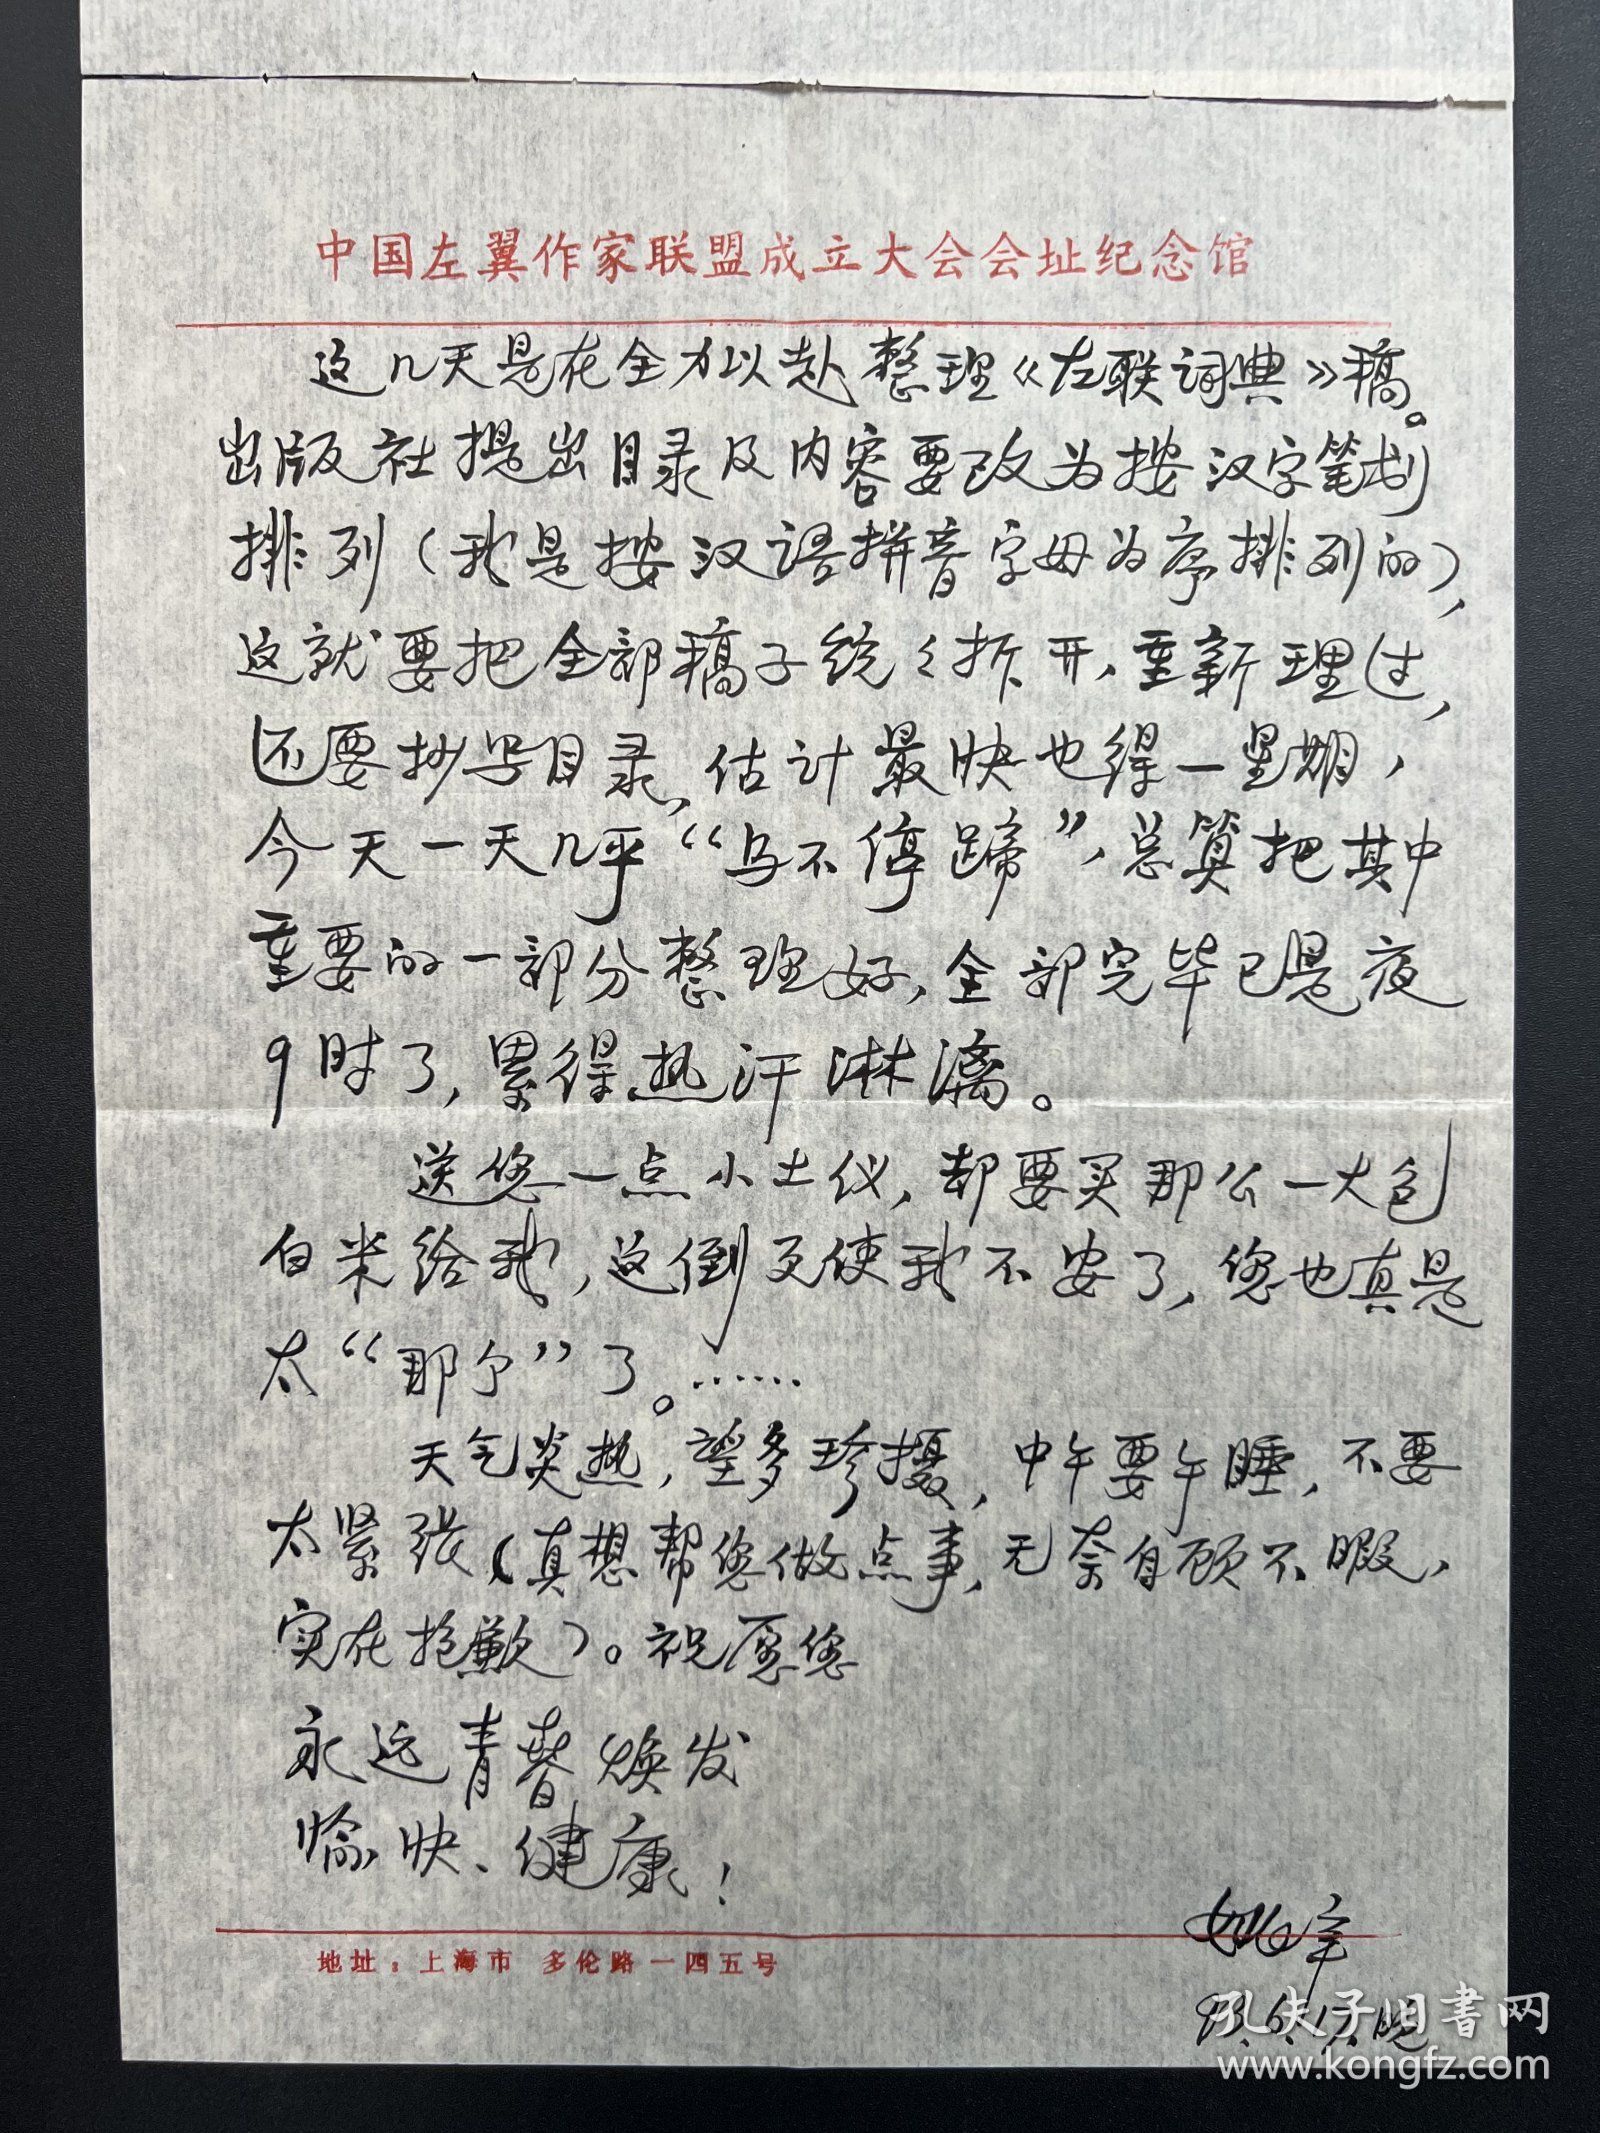 中国左翼作家联盟成立大会会址纪念馆
这几天是在全力以赴整理《左联词典》稿。
出版社提出目录及内容要改为按汉字笔划
排列（我是按汉语拼音字母为序排列的），
这就要把全部稿子统统拆开，重新理过，
还要抄写目录，估计最快也得一星期，
今天一天几乎“马不停蹄”，总算把其中
重要的一部分整理好，全部完毕已是夜
9时了，累得热汗淋漓。
送您一点小土仪，却要买那么一大包
白米给我，这倒更使我不安了，您也真是
太“那个”了。……
天气炎热，望多珍摄，中午要午睡，不要
太紧张（真想帮您做点事，无奈自顾不暇，
实在抱歉）。祝愿您
永远青春焕发
愉快、健康！
姚辛
93.6.17.晚
地址：上海市 多伦路一四五号
孔夫子旧书网
www.kongfz.com